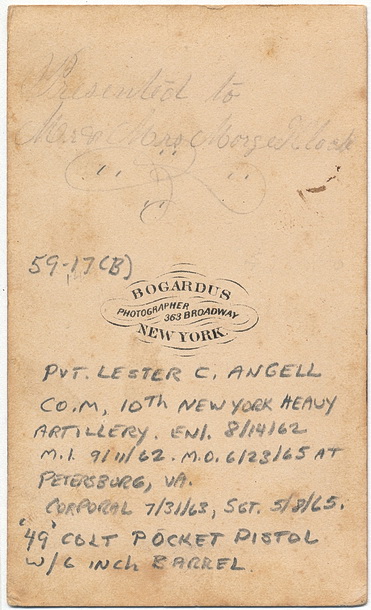 Presented to
Mr & Mrs Morse
59-17(B)
BOGARDUS
PHOTOGRAPHER
363 BROADWAY
NEW YORK.
PVT. LESTER C. ANGELL
CO.M, 10th NEW YORK HEAVY
ARTILLERY. ENl. 8/14/62
M.I. 9/11/62. M.O. 6/23/65 AT
PETERSBURG, VA.
CORPORAL 7/31/63, SGT. 5/8/65.
"49" COLT POCKET PISTOL
W/6 INCH BARREL.